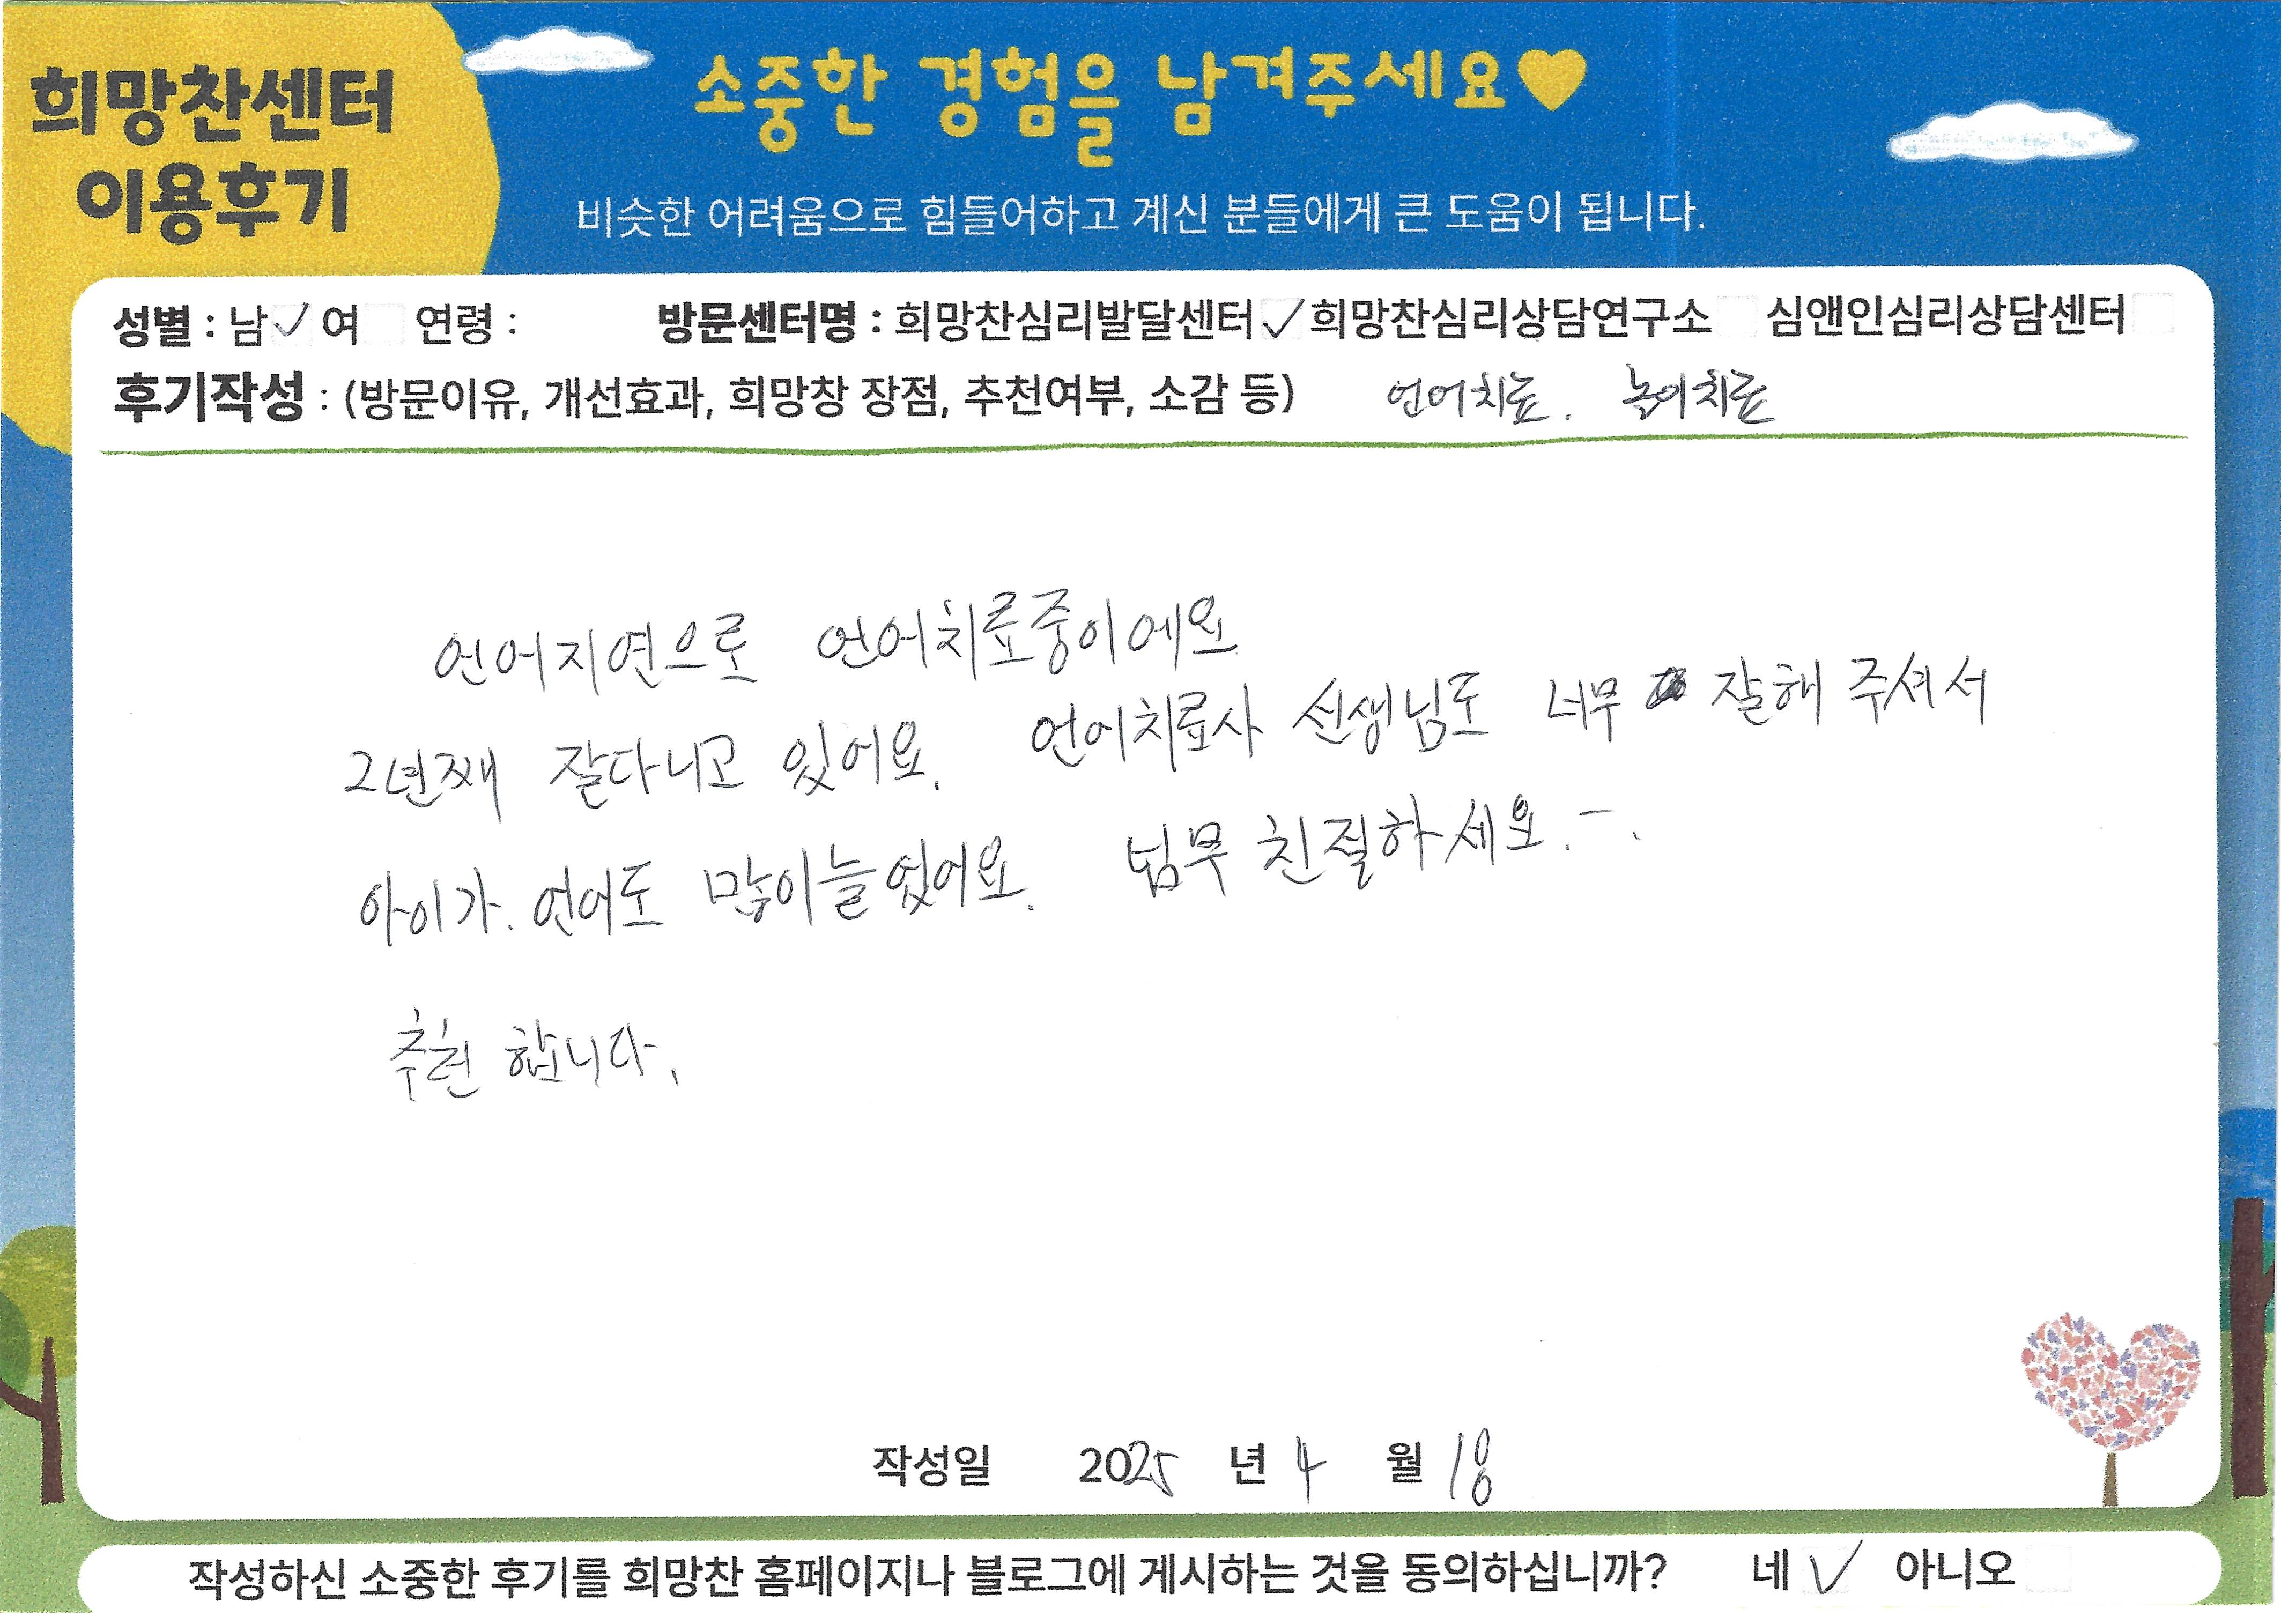 희망찬센터
이용후기
소중한 경험을 남겨주세요♥
비슷한 어려움으로 힘들어하고 계신 분들에게 큰 도움이 됩니다.
성별 : 남 ✓ 여 연령 : 방문센터명 : 희망찬심리발달센터 ✓ 희망찬심리상담연구소 심앤인심리상담센터
후기작성 : (방문이유, 개선효과, 희망창 장점, 추천여부, 소감 등) 언어치료. 놀이치료
언어지연으로 언어치료중이에요
2년째 잘다니고 있어요. 언어치료사 선생님도 너무 잘해 주셔서
아이가. 언어도 많이늘었어요. 넘무 친절하세요.
추천 합니다.
작성일 2025 년 4 월 18
작성하신 소중한 후기를 희망찬 홈페이지나 블로그에 게시하는 것을 동의하십니까? 네 ✓ 아니오